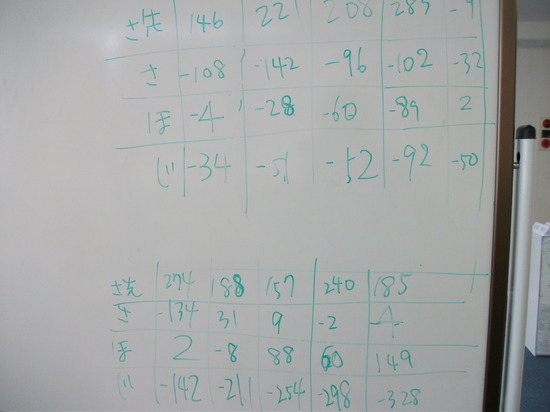 さ先 146 221 208 285 -9
さ -108 -142 -96 -102 -32
ほ -4 -28 -60 -89 2
じ -34 -51 -52 -92 -50
さ先 274 188 157 240 185
さ -134 31 9 -2
ほ 2 -8 88 60 149
じ -142 -211 -254 -298 -328